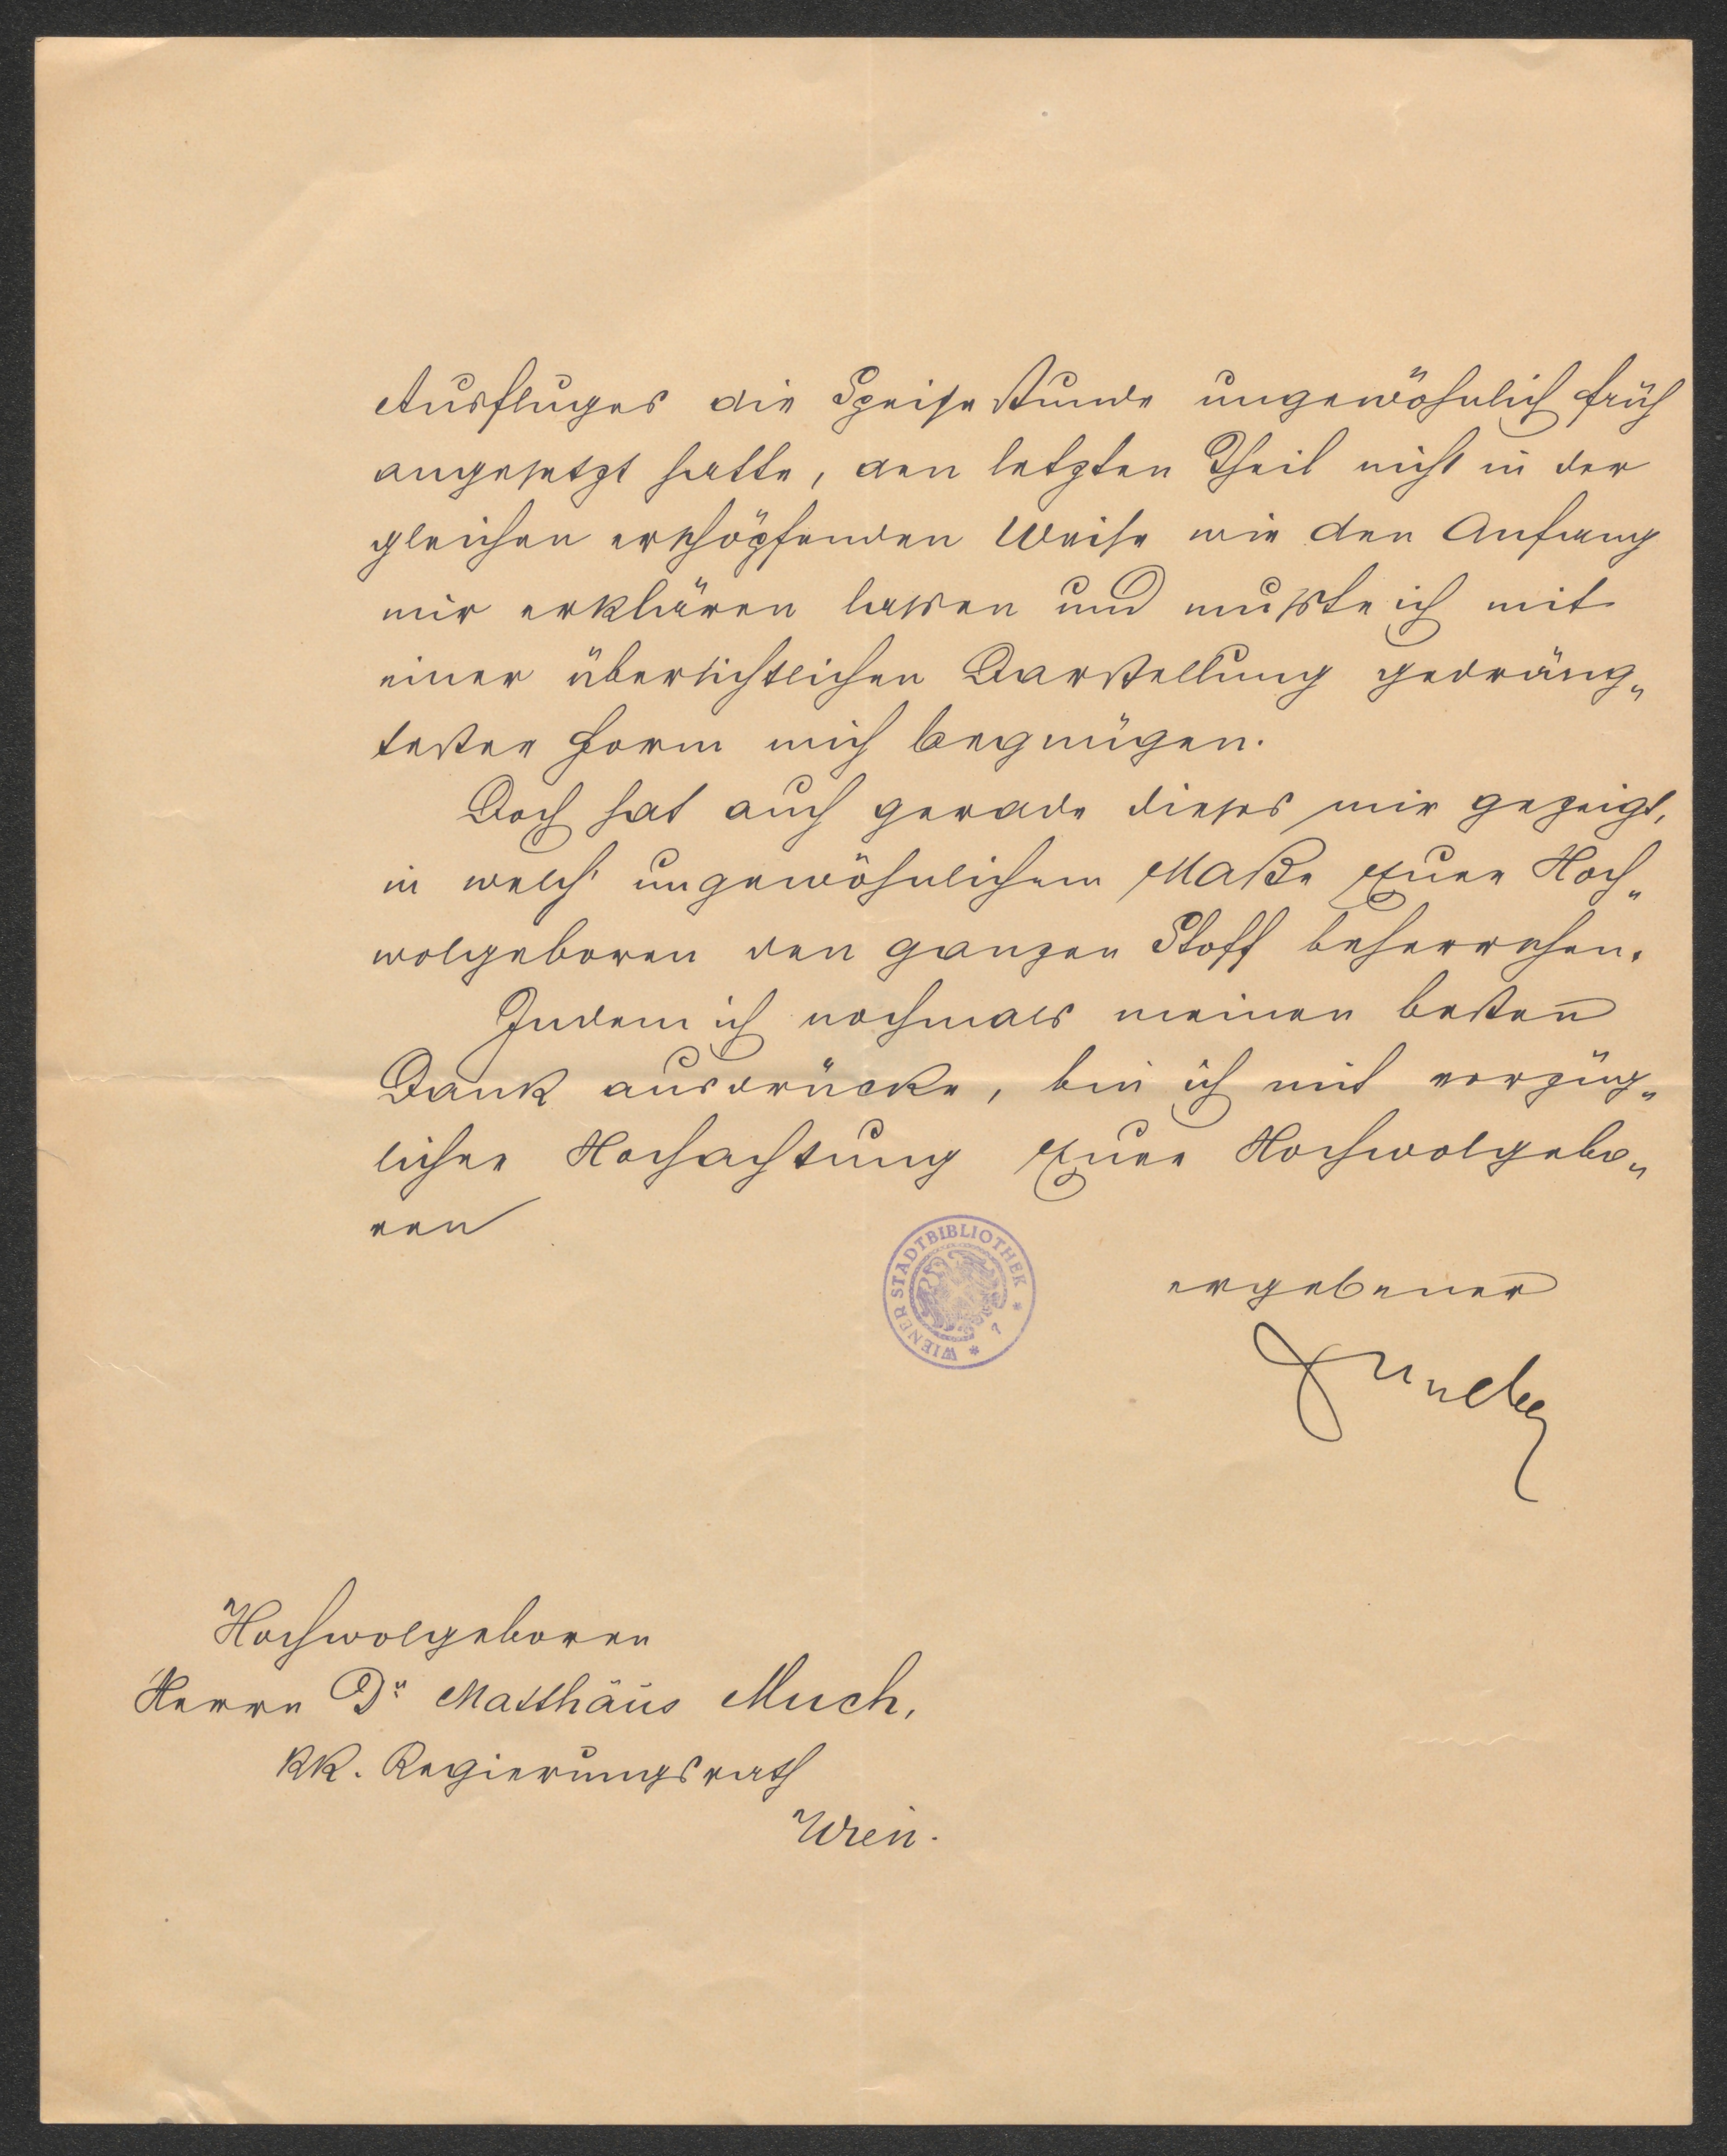 Ausfluges die Speisestunde ungewöhnlich früh
angesetzt hatte, den letzten Theil nicht in der
gleichen erschöpfenden Weise wie den Anfang
mir erklären lassen und mußte ich mit
einer übersichtlichen Darstellung gedräng„
tester Form mich begnügen.
Doch hat auch gerade dieses mir gezeigt,
in welch' ungewöhnlichem Maße Euer Hoch„
wolgeboren den ganzen Stoff beherrschen.
Indem ich nochmals meinen besten
Dank ausdrücke, bin ich mit vorzüg„
licher Hochachtung Euer Hochwolgebo„
ren
WIENER STADTBIBLIOTHEK * 7 *
ergebener
Hochwolgeboren
Herrn Dr Matthäus Much,
KK. Regierungsrath
Wien.